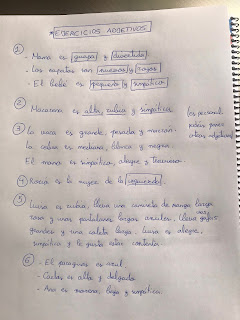 EJERCICIOS ADJETIVOS
①
- Mama es guapa y divertida
- Los zapatos son nuevos y rojos
- El bebé es pequeño y simpático
② Macarena es alta, rubia y simpática
los personales
adjetivos
③ La vaca es grande, pesada y marrón.
La cebra es mediana, blanca y negra.
El mono es simpático, alegre y travieso.
④ Rocío es la mujer de la izquierda.
⑤ Luisa es rubia, lleva una camiseta de manga larga
rosa y unos pantalones largos azules. lleva gafas
grandes y una coleta larga. Luisa es alegre,
simpática y le gusta estar contenta.
⑥ - El paraguas es azul.
- Carlos es alto y delgado
- Ana es morena, baja y simpática.